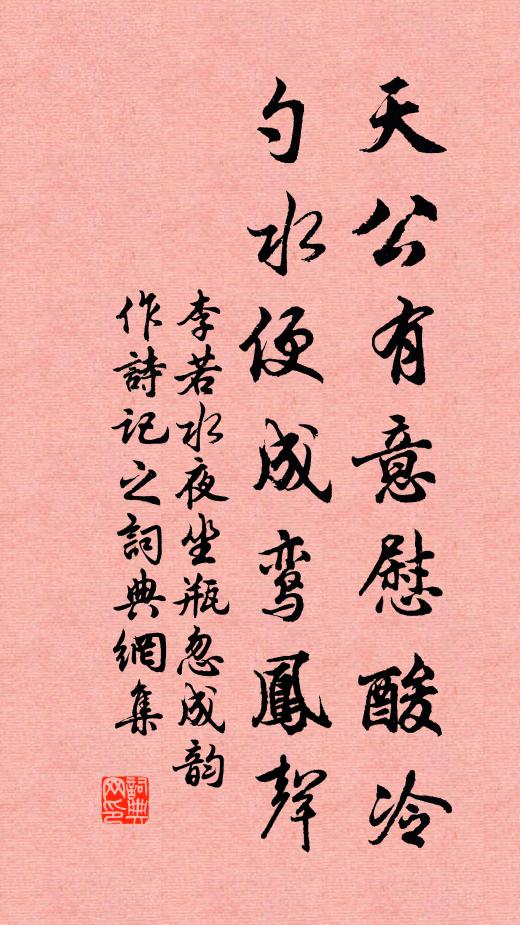 天公有意慰酸冷
勺水便成鸾鳳聲
李若水夜坐瓶忽成韵
作詩記之詞典網集
詞典网印